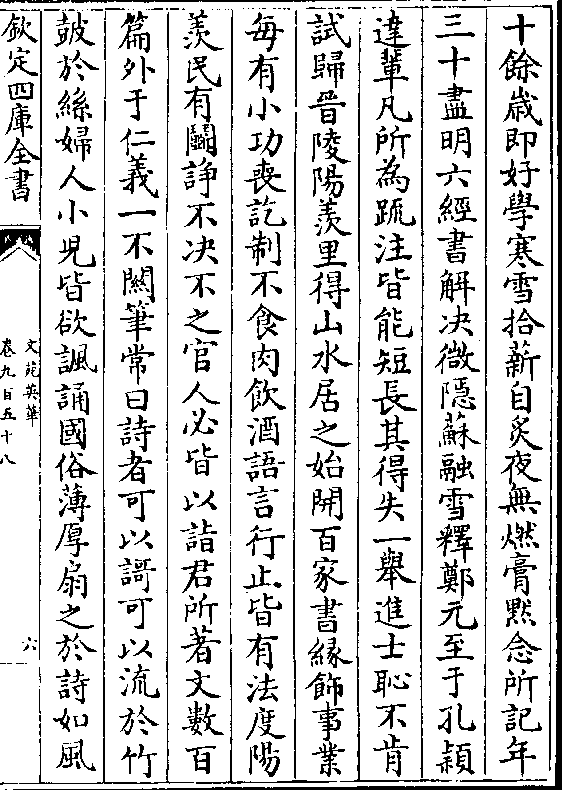 十餘歲即好學寒雪拾薪自炙夜無燃膏黙念所記年
三十盡明六經書解决微隱蘇融雪釋鄭元至于孔穎
達軰凡所為䟽注皆能短長其得失一舉進士恥不肯
試歸晉陵陽羨里得山水居之始開百家書緣飾事業
每有小功喪訖制不食肉飲酒語言行止皆有法度陽
羨民有鬭諍不决不之官人必皆以詣君所著文數百
篇外于仁義一不闗筆常曰詩者可以謌可以流於竹
鼓於絲婦人小兒皆欲諷誦國俗薄厚扇之於詩如風
欽定四庫全書
文苑英華
卷九百五十八
六